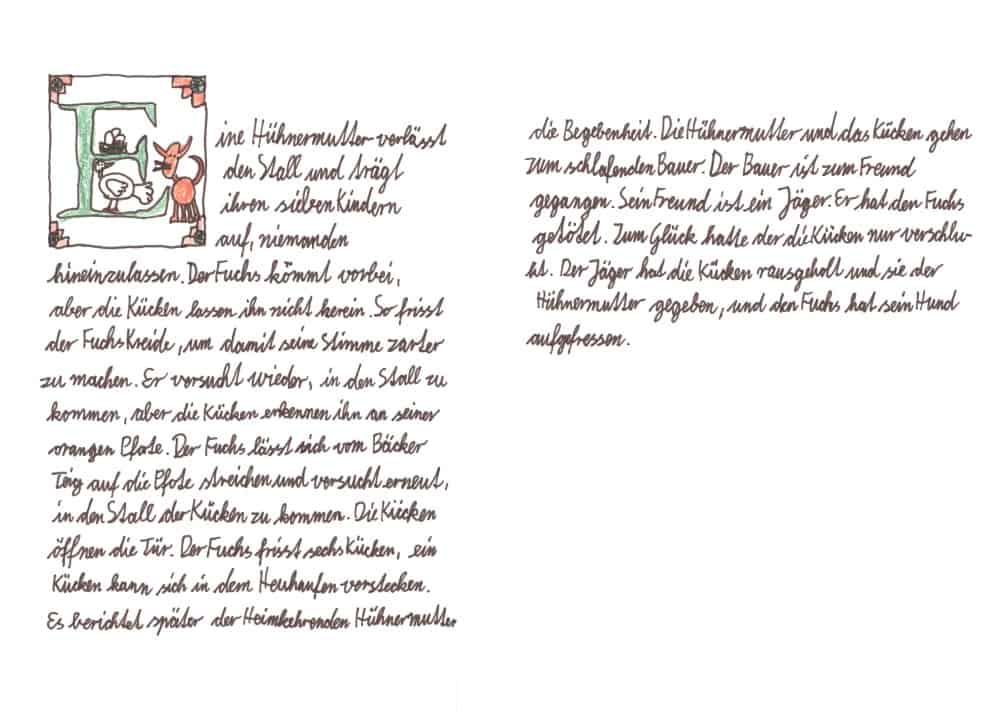 Eine Hühnermutter verlässt
den Stall und trägt
ihren sieben Kindern
auf, niemanden
hineinzulassen. Der Fuchs kömmt vorbei,
aber die Kücken lassen ihn nicht herein. So frisst
der Fuchs Kreide, um damit seine Stimme zarter
zu machen. Er versucht wieder, in den Stall zu
kommen, aber die Kücken erkennen ihn an seiner
orangen Pfote. Der Fuchs lässt sich vom Bäcker
Teig auf die Pfote streichen und versucht erneut,
in den Stall der Kücken zu kommen. Die Kücken
öffnen die Tür. Der Fuchs frisst sechs Kücken, ein
Kücken kann sich in dem Heuhaufen verstecken.
Es berichtet später der Heimkehrenden Hühnermutter
die Begebenheit. Die Hühnermutter und das Kücken gehen
zum schlafenden Bauer. Der Bauer ist zum Freund
gegangen. Sein Freund ist ein Jäger. Er hat den Fuchs
getötet. Zum Glück hatte der die Kücken nur verschlu-
kt. Der Jäger hat die Kücken rausgeholt und sie der
Hühnermutter gegeben, und den Fuchs hat sein Hund
aufgefressen.